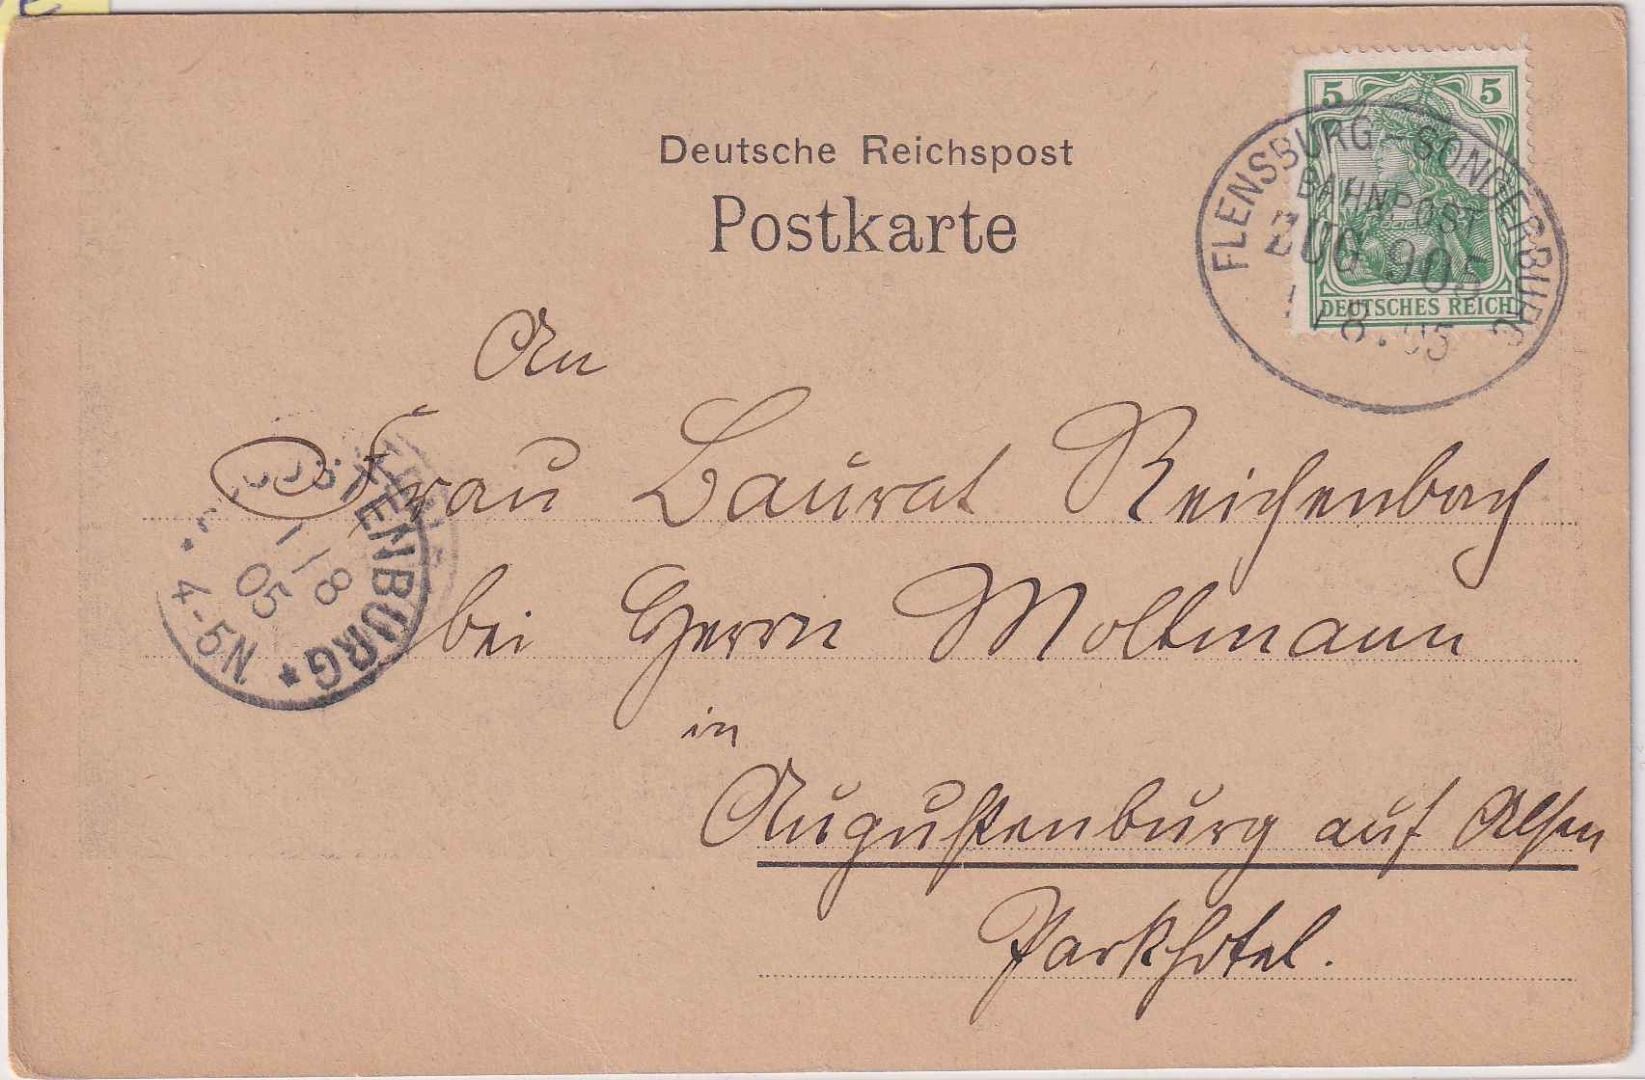 5 5
DEUTSCHES REICH
FLENSBURG - SONDERBURG
BAHNPOST
ZUG 905
1/8.05
Deutsche Reichspost
Postkarte
An
Frau Baurat Reichenbach
bei Herrn Moltmann
in
Augustenburg auf Alsen
Parkhotel.
AUGUSTENBURG
1/8
05
4-5N.